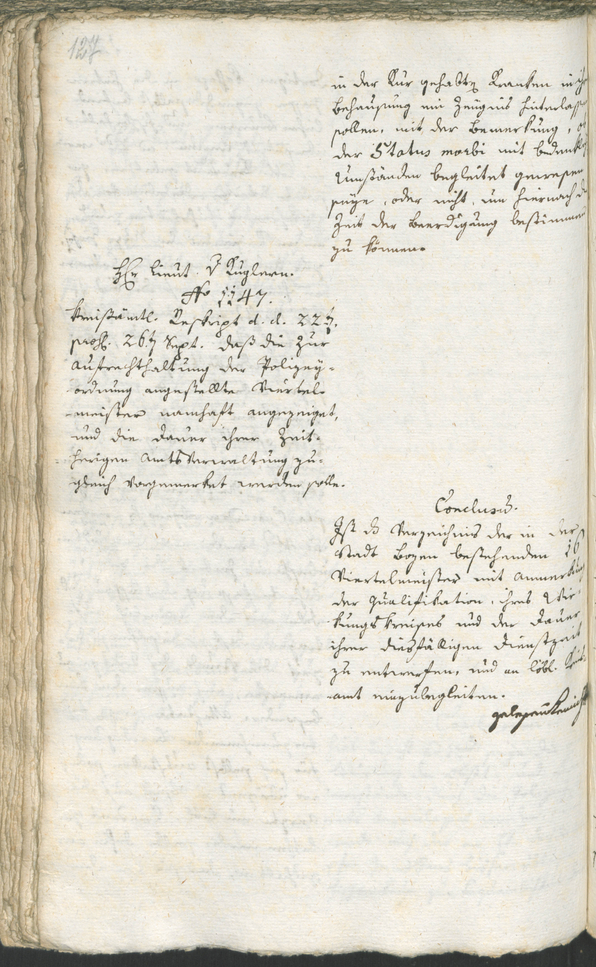 127
in der Kur gehabten Kranken in ihr
Behausung ein Zeugnis hinterlassen
sollen, mit der Bemerkung, ob
der Status morbi mit bedenkl
Umständen begleitet gewesen
seye, oder nicht, um hiernach die
Zeit der Beerdigung bestimmen
zu können.
Lieut. v Kuglern.
No 1147.
Kreisämtl. Reskript d. d. 22t,
praes. 26t Sept. daß die zur
Aufrechthaltung der Polizey-
ordnung angestellte Viertel-
meister namhaft angezeiget,
und die Dauer ihrer Zeit-
herigen Amtsverwaltung zu-
gleich vorgemerket werden solle.
Conclusum.
Ist das Verzeichnis der in der
Stadt Bozen bestehenden 16
Viertelmeister mit Anmerkung
der Qualifikation, ihres Wir-
kungskreises und der Dauer
ihrer diesfälligen Dienstzeit
zu entwerfen, und an löbl. Kreis-
amt einzubegleiten.